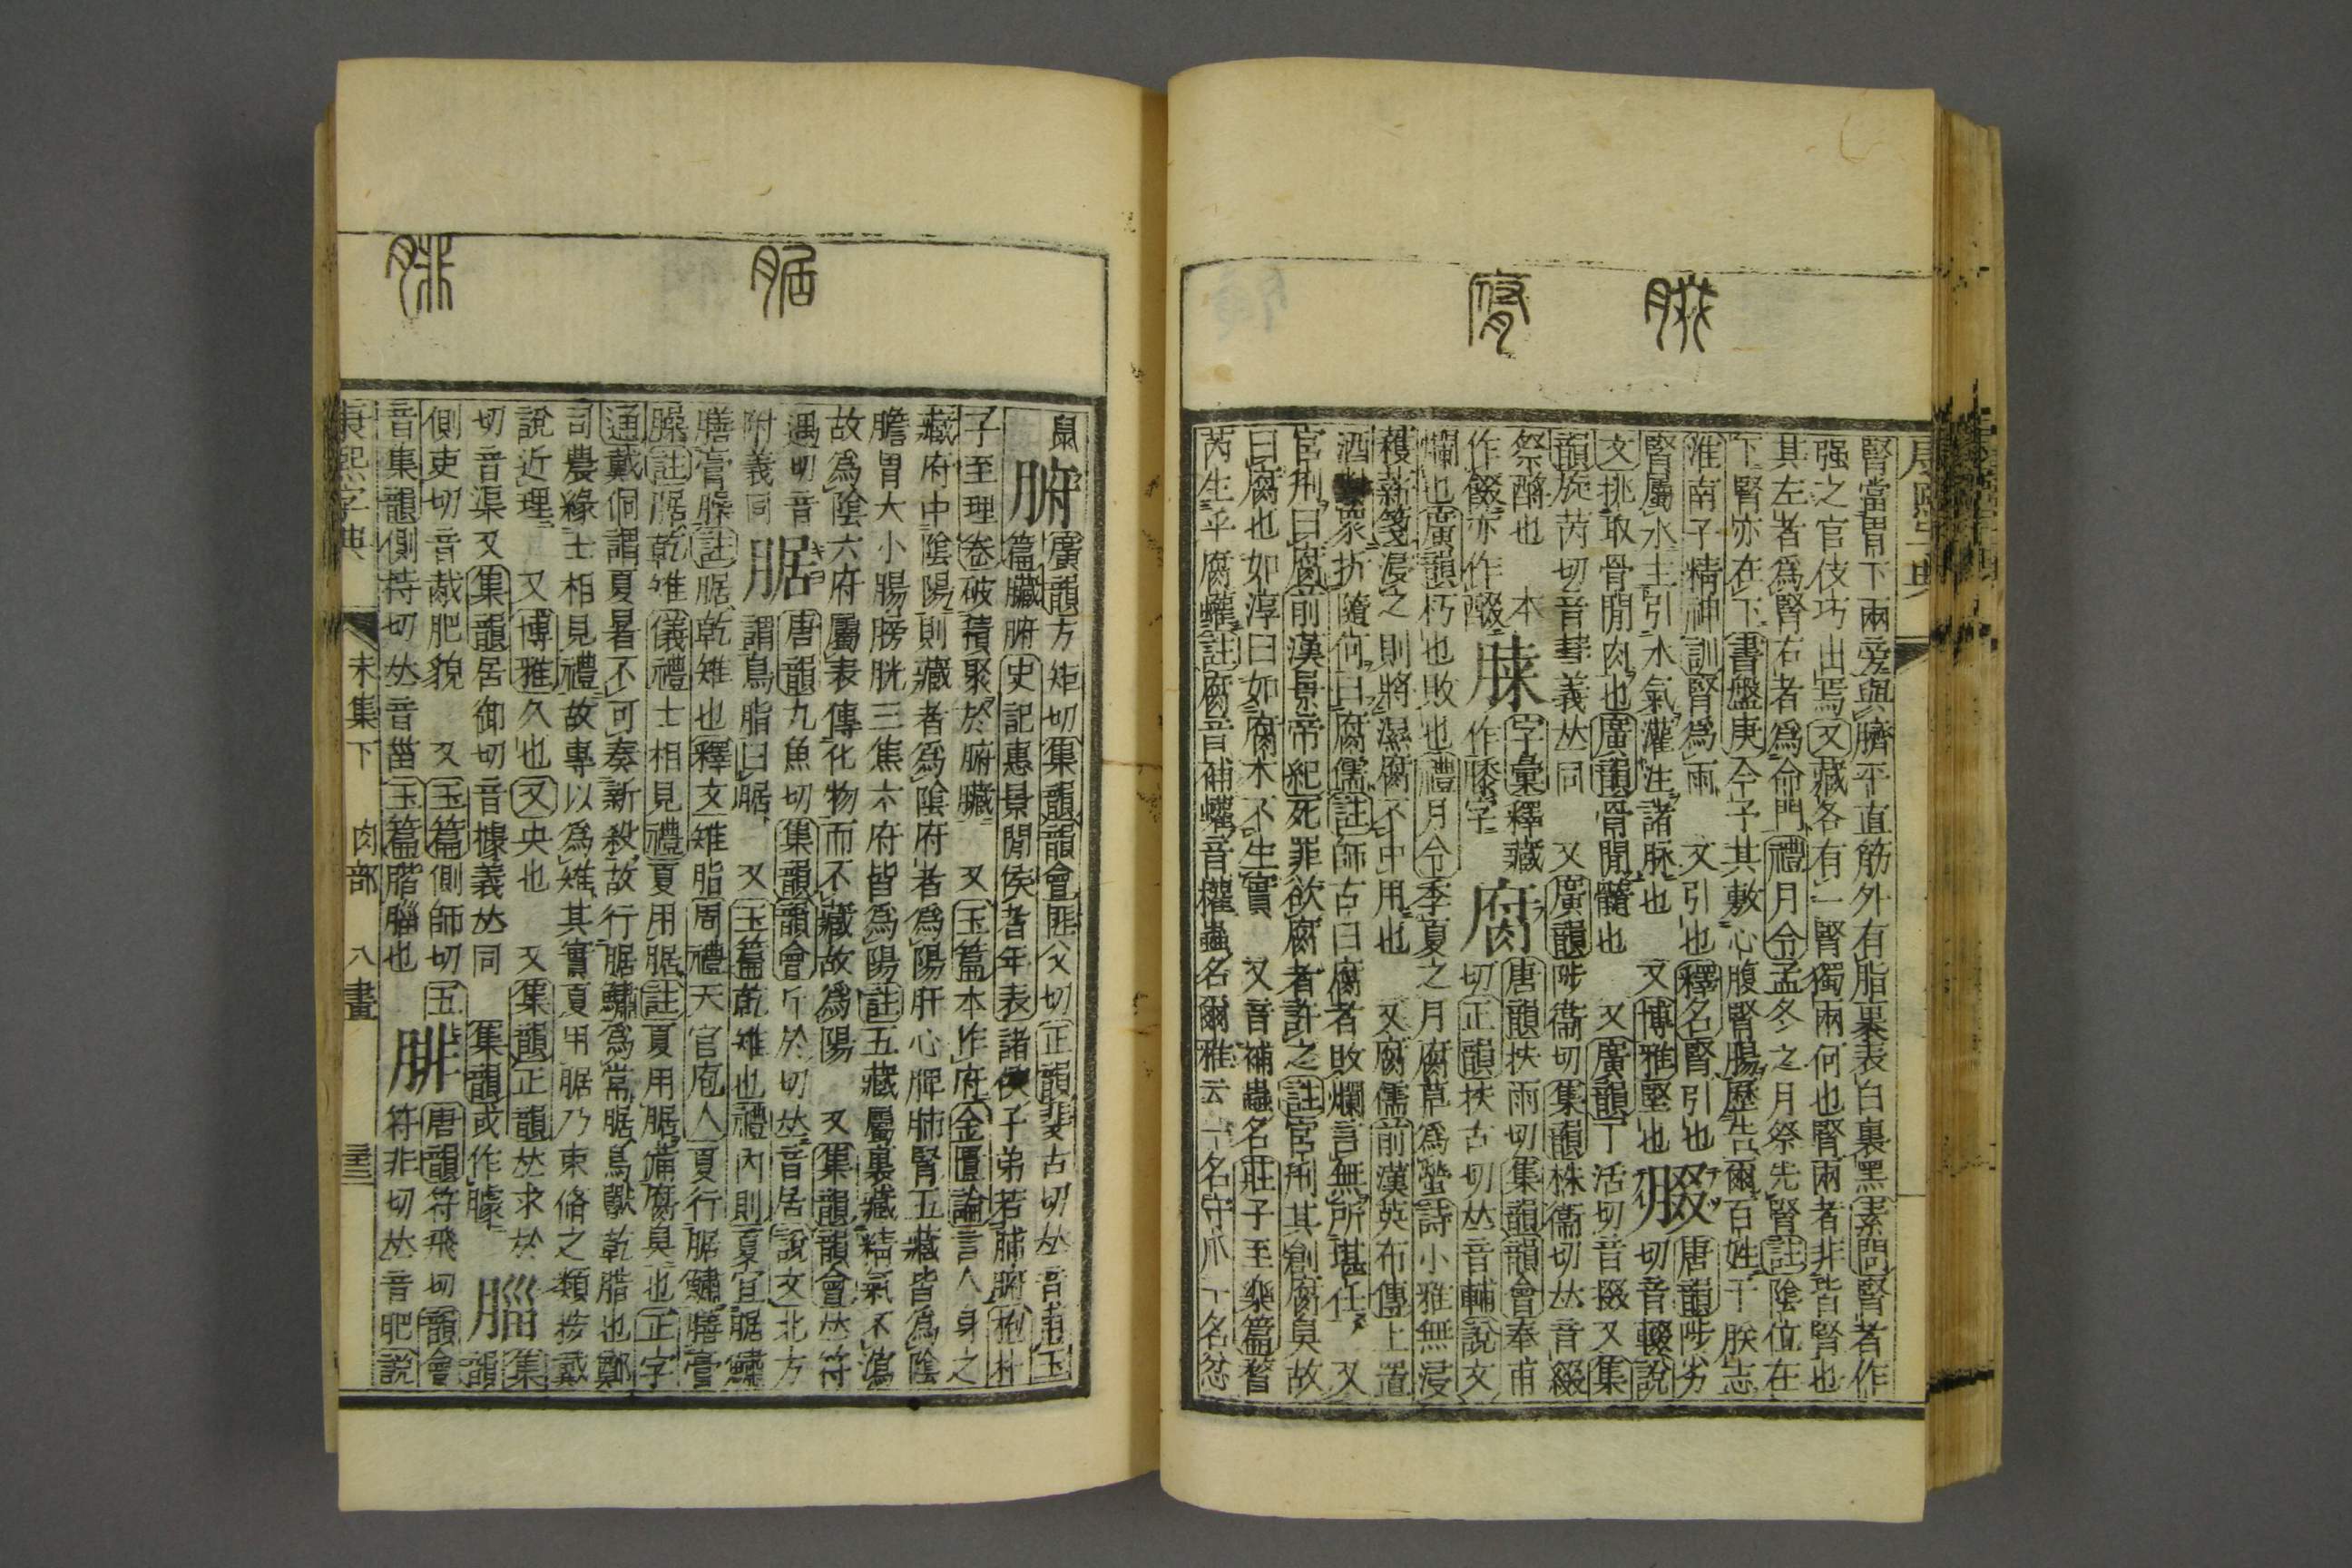 康熙字典
腎當胃下兩旁與臍平直筋外有脂裹表白裏黑素問腎者作
强之官伎巧出焉又藏各有一腎獨兩何也腎兩者非皆腎也
其左者爲腎右者爲命門禮月令孟冬之月祭先腎註陰位在
下腎亦在下書盤庚今予其敷心腹腎腸歷告爾百姓于朕志
淮南子精神訓腎爲雨　又引也釋名腎引也
腎屬水主引水氣灌注諸脉也　又博雅堅也
腏
唐韻陟劣
切音輟說
文挑取骨閒肉也廣韻骨閒髓也　又廣韻丁活切音掇又集
韻㫌芮切音彗義𠀤同　又廣韻陟衞切集韻株衞切𠀤音綴
祭酹也　本
作餟亦作醊
𦛠
字彙釋藏
作膝字
腐
唐韻扶雨切集韻韻會奉甫
切正韻扶古切𠀤音輔說文
爛也廣韻朽也敗也禮月令季夏之月腐草爲螢詩小雅無浸
穫薪箋浸之則將濕腐不中用也　又腐儒前漢英布傳上置
酒對衆折隨何曰腐儒註師古曰腐者敗爛言無所堪任　又
宮刑曰腐前漢景帝紀死罪欲腐者許之註宮刑其創腐臭故
曰腐也如淳曰如腐木不生實　又音補蟲名莊子至樂篇瞀
芮生乎腐蠸註腐音補蠸音權蟲名爾雅云一名守瓜一名忿
鼠
腑
廣韻方矩切集韻韻會匪父切正韻斐古切𠀤音甫玉
篇臟腑史記惠景閒侯者年表諸侯子弟若肺腑抱朴
子至理卷破積聚於腑臟　又玉篇本作府金匱論言人身之
藏府中陰陽則藏者爲陰府者爲陽肝心脾肺腎五藏皆爲陰
膽胃大小腸膀胱三焦六府皆爲陽註五藏屬裏藏精氣不瀉
故爲陰六府屬表傳化物而不藏故爲陽　又集韻韻會𠀤符
遇切音
附義同
腒
唐韻九魚切集韻韻會斤於切𠀤音居說文北方
謂鳥脂曰腒　又玉篇乾雉也禮內則夏宜腒鱐
膳膏臊註腒乾雉也釋文雉脂周禮天官庖人夏行腒鱐膳膏
臊註腒乾雉儀禮士相見禮夏用腒註夏用腒備腐臭也正字
通戴侗謂夏暑不可奏新殺故行腒鱐爲常腒鳥獸乾腊也鄭
司農緣士相見禮故專以爲雉其實夏用腒乃束脩之類按戴
說近理　又博雅久也　又央也　又集韻正韻𠀤求於
切音渠又集韻居御切音據義𠀤同　集韻或作臄
腦
集
韻
側吏切音胾肥貌　又玉篇側師切五
音集韻側持切𠀤音菑玉篇腦也
腓
唐韻符飛切韻會
符非切𠀤音肥說
康熙字典
未集下　肉部　八畫